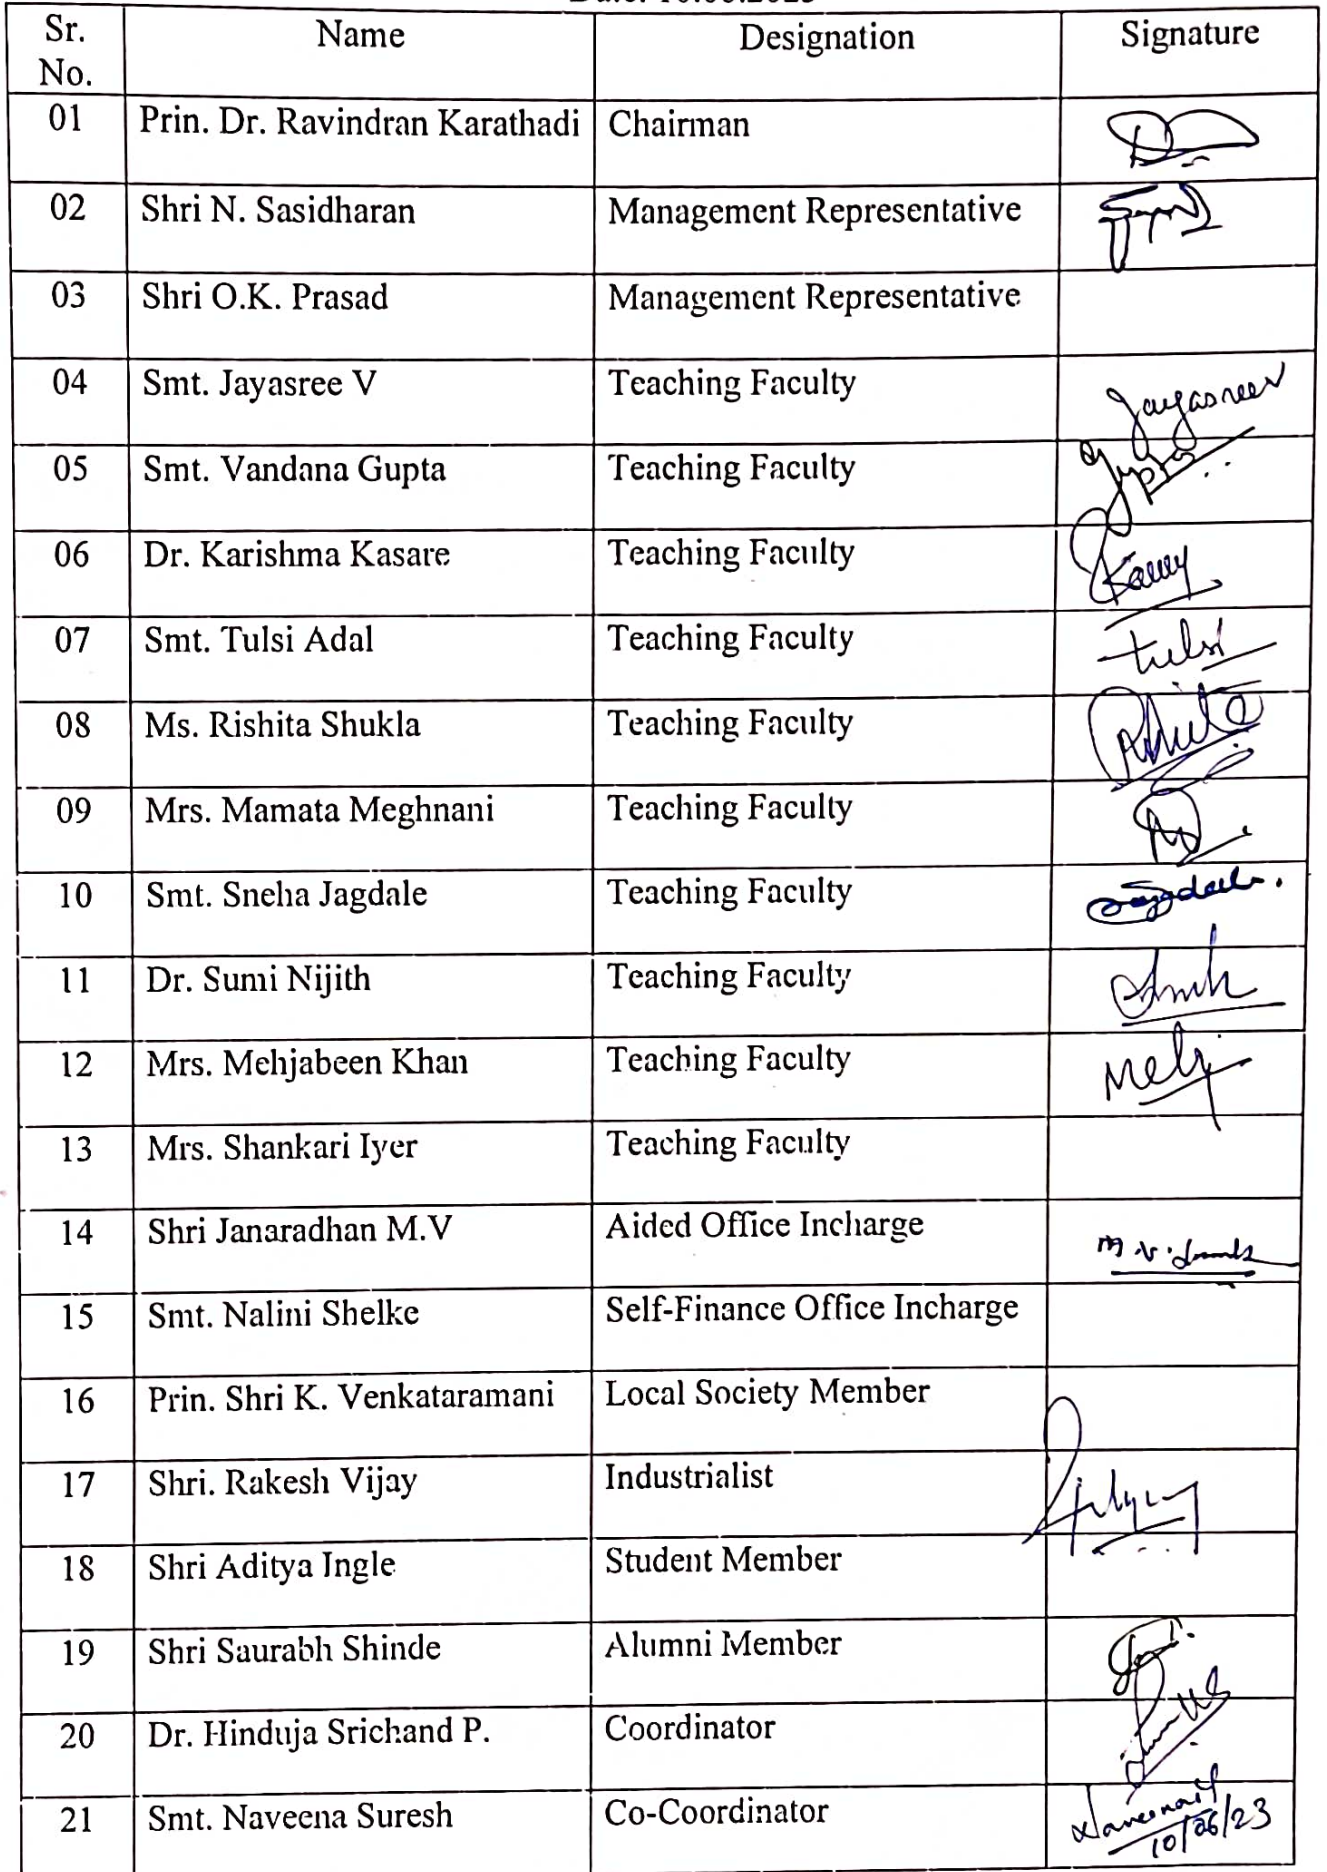 Sr. No. Name Designation Signature
01 Prin. Dr. Ravindran Karathadi Chairman
02 Shri N. Sasidharan Management Representative
03 Shri O.K. Prasad Management Representative
04 Smt. Jayasree V Teaching Faculty Jayasreev
05 Smt. Vandana Gupta Teaching Faculty
06 Dr. Karishma Kasare Teaching Faculty
07 Smt. Tulsi Adal Teaching Faculty tulsi
08 Ms. Rishita Shukla Teaching Faculty
09 Mrs. Mamata Meghnani Teaching Faculty
10 Smt. Sneha Jagdale Teaching Faculty
11 Dr. Sumi Nijith Teaching Faculty
12 Mrs. Mehjabeen Khan Teaching Faculty Mehj
13 Mrs. Shankari Iyer Teaching Faculty
14 Shri Janaradhan M.V Aided Office Incharge M.V.
15 Smt. Nalini Shelke Self-Finance Office Incharge
16 Prin. Shri K. Venkataramani Local Society Member
17 Shri. Rakesh Vijay Industrialist
18 Shri Aditya Ingle Student Member
19 Shri Saurabh Shinde Alumni Member
20 Dr. Hinduja Srichand P. Coordinator
21 Smt. Naveena Suresh Co-Coordinator
10/06/23